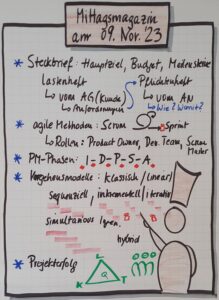 Mittagsmagazin
am 09. Nov. '23
* Steckbrief: Hauptziel, Budget, Meilensteine
Lastenheft Pflichtenheft
↳ vom AG (Kunde) ↳ vom AN
Anforderungen ↳ Wie? Womit?
* agile Methoden: Scrum Sprint
↳ Rollen: Product Owner, Dev. Team, Scrum
Master
* PM-Phasen: I-D-P-S-A
* Vorgehensmodelle: klassisch / linear /
sequenziell / inkrementell / iterativ
simultaneous
hybrid
* Projekterfolg
K L T